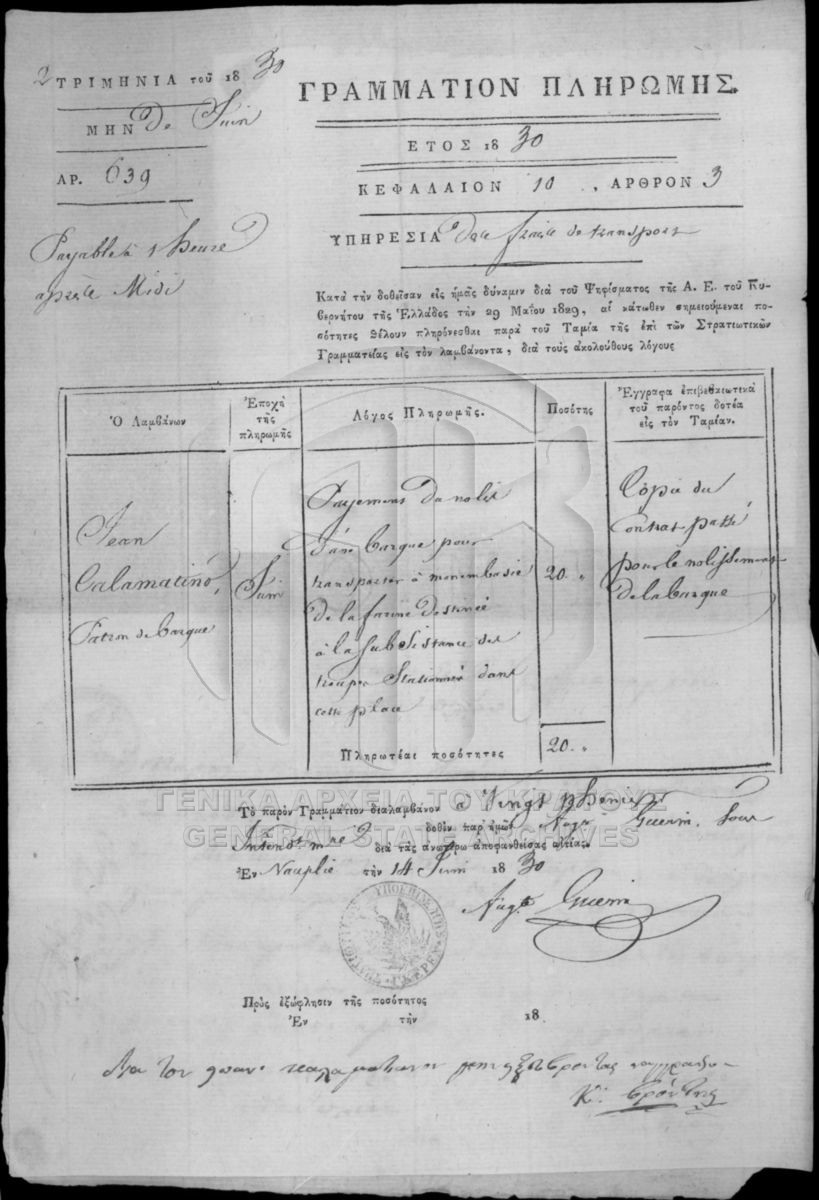 2 ΤΡΙΜΗΝΙΑ τοῦ 18 30
ΜΗΝ de Juin
ΑΡ. 639
Payable à 1 heure
après Midi
ΓΡΑΜΜΑΤΙΟΝ ΠΛΗΡΩΜΗΣ.
ΕΤΟΣ 18 30
ΚΕΦΑΛΑΙΟΝ 10 , ΑΡΘΡΟΝ 3
ΥΠΗΡΕΣΙΑ des frais de transport
Κατὰ τὴν δοθεῖσαν εἰς ἡμᾶς δύναμιν διὰ τοῦ Ψηφίσματος τῆς Α. Ε. τοῦ Κυ-
βερνήτου τῆς Ἑλλάδος τὴν 29 Μαΐου 1829, αἱ κάτωθεν σημειούμεναι πο-
σότητες θέλουν πληρόνεσθαι παρὰ τοῦ Ταμία τῆς ἐπὶ τῶν Στρατιωτικῶν
Γραμματείας εἰς τὸν λαμβάνοντα, διὰ τοὺς ἀκολούθους λόγους
Ὁ Λαμβάνων
Ἐποχὴ
τῆς
πληρωμῆς
Λόγος Πληρωμῆς.
Ποσότης
Ἔγγραφα ἐπιβεβαιωτικὰ
τοῦ παρόντος δοτέα
εἰς τὸν Ταμίαν.
Jean
Calamatino,
Patron de barque
Juin
Payement du nolis
d'une barque pour
transporter à monembasie
de la farine destinée
à la subsistance des
troupes Stationnées dans
cette place
20 "
Copie du
contrat passé
pour le nolissement
de la barque
Πληρωτέαι ποσότητες 20. "
Τὸ παρὸν Γραμμάτιον διαλαμβάνον Vingt phenix
δοθὲν παρ' ἡμῶν Aug.te Guerin, Sous
Intend.t m.re διὰ τὰς ἀνωτέρω ἀποφανθείσας αἰτίας.
Ἐν Nauplie τὴν 14 Juin 18 30
Aug.te Guerin
Πρὸς ἐξώφλησιν τῆς ποσότητος
Ἐν τὴν 18
Δια τον
ΓΕΝΙΚΑ ΑΡΧΕΙΑ ΤΟΥ ΚΡΑΤΟΥΣ
GENERAL STATE ARCHIVES